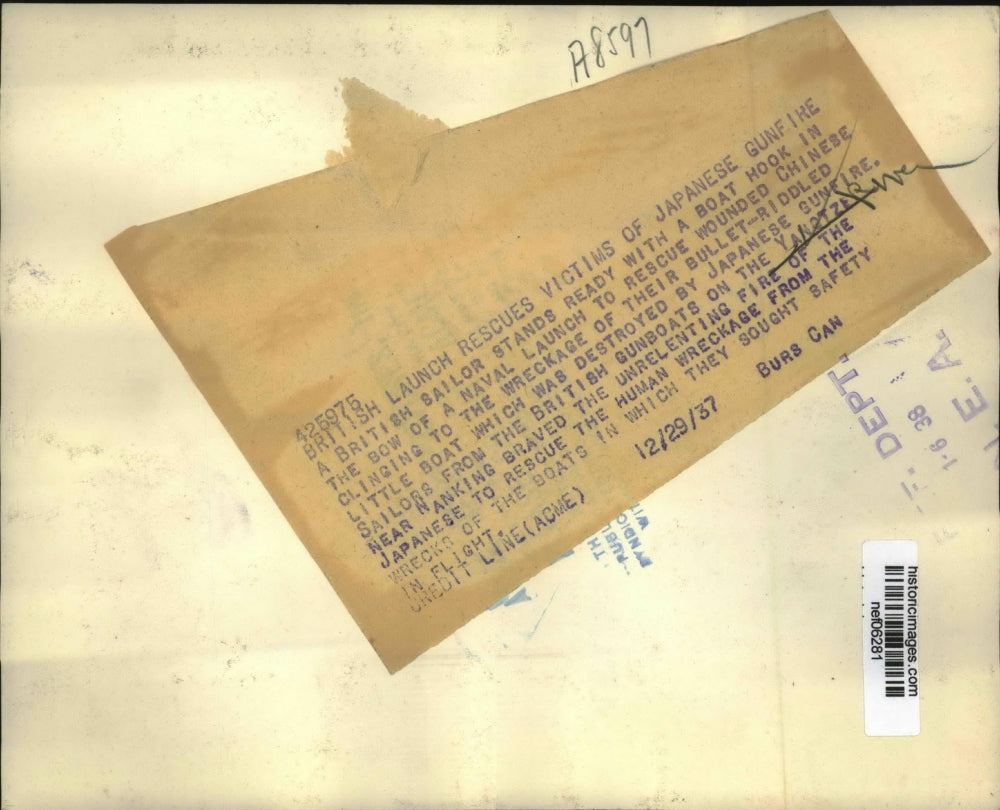 A8597
425975
BRITISH LAUNCH RESCUES VICTIMS OF JAPANESE GUNFIRE
A BRITISH SAILOR STANDS READY WITH A BOAT HOOK IN
THE BOW OF A NAVAL LAUNCH TO RESCUE WOUNDED CHINESE
CLINGING TO THE WRECKAGE OF THEIR BULLET-RIDDLED
LITTLE BOAT WHICH WAS DESTROYED BY JAPANESE GUNFIRE.
SAILORS FROM THE BRITISH GUNBOATS ON THE YANGTZE
NEAR NANKING BRAVED THE UNRELENTING FIRE OF THE
JAPANESE TO RESCUE THE HUMAN WRECKAGE FROM THE
WRECKS OF THE BOATS IN WHICH THEY SOUGHT SAFETY
IN FLIGHT.
CREDIT LINE (ACME) 12/29/37 BURS CAN
DEPT.
1-6 38
N. E. A.
historicimages.com
nef06281